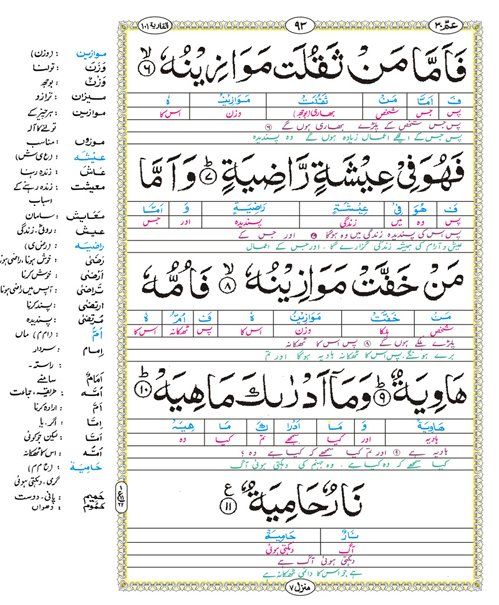 عمّ ٣٠
٩٣
القارعة ١٠١
فَاَمَّا مَنْ ثَقُلَتْ مَوَازِيْنُهٗ ۙ ٦
فَ اَمَّا مَنْ ثَقُلَتْ مَوَازِيْنُ هٗ
پس جس شخص بھاری (بوجھ) وزن اس کا
پس جس شخص کے پلڑے بھاری ہوں گے ٦
پس جس کے اچھے اعمال زیادہ ہوں گے وہ پسندیدہ
فَهُوَ فِيْ عِيْشَةٍ رَّاضِيَةٍ ؕ ٧ وَاَمَّا
فَ هُوَ فِيْ عِيْشَةٍ رَاضِيَةٍ وَ اَمَّا
پس وہ میں زندگی پسندیدہ اور جس
پس جس کی پسندیدہ زندگی میں ہو گا ٧ اور جس کے
عیش و آرام کی ہمیشہ زندگی گزارے گا۔ اور جس کے اعمال
مَنْ خَفَّتْ مَوَازِيْنُهٗ ۙ ٨ فَاُمُّهٗ
مَنْ خَفَّتْ مَوَازِيْنُ هٗ فَ اُمُّ هٗ
شخص ہلکا وزن اس کا پس ٹھکانہ اس کا
پلڑے ہلکے ہوں گے ٨ پس اس کا ٹھکانہ
برے ہونگے، پس اس کا ٹھکانہ ہاویہ ہوگا اور تم
هَاوِيَةٌ ؕ ٩ وَمَاۤ اَدْرٰىكَ مَاهِيَهْ ؕ ١٠
هَاوِيَةٌ وَ مَا اَدْرٰ كَ مَا هِيَهْ
ہاویہ اور کیا سمجھے تم کیا وہ
ہاویہ ہے ٩ اور تم کیا سمجھے کہ کیا ہے وہ ؟
کیا سمجھے کہ وہ کیا ہے۔ وہ جہنم کی دہکتی ہوئی آگ
نَارٌ حَامِيَةٌ ١١ ع
نَارٌ حَامِيَةٌ
آگ دہکتی ہوئی
ہے جو اس کا دائمی ٹھکانہ ہے
منزل ٧
موازين : (وزن)
وَزَنَ : تولنا
وَزْنٌ : بوجھ
ميزان : ترازو
موازين : ہر چیز کے
تولنے کا آلہ
موزوں : مناسب
عِيْشَة : (ع ی ش)
عَاشَ : زندہ رہنا
معيشت : زندہ رہنے کے
اسباب
مَعَايش : سامان
عيش : رونق، زندگی
راضية : (رض ی)
رَضِىَ : خوش ہونا، راضی ہونا
اَرْضٰى : خوش کرنا
تَراضٰى : آپس میں راضی ہونا
ارتضٰى : پسند کرنا
مُرتضٰى : پسندیدہ
اُمّ : (ا م م) ماں
اِمام : سردار
راستہ
اَمَامٌ : سامنے
اُمَّة : طریقہ، جماعت
اَمَّ : ارادہ کرنا
اِمَّا : اگر، یا
اَمَّا : لیکن جو کوئی
اُمُّهٗ : اس کا ٹھکانہ
حَامِيَة : (ح م م)
گرمی، دہکتی ہوئی
حَمِيْم : پانی، دوست
دھواں